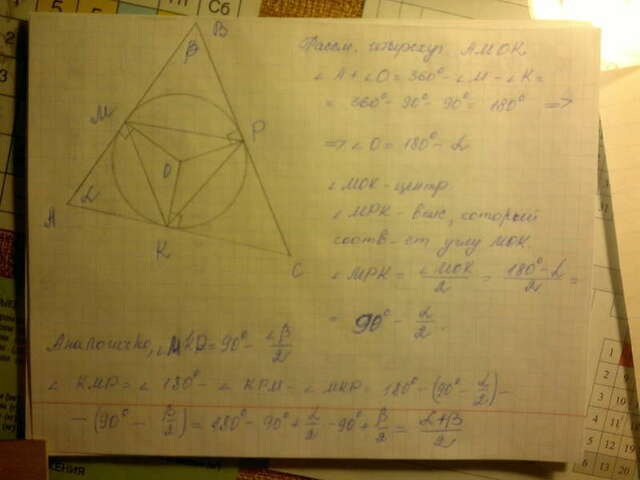 Сб
B
β
M
P
O
α
A
K
C
Рассм. четырехуг. AMOK
∠A + ∠O = 360° - ∠M - ∠K =
= 360° - 90° - 90° = 180° =>
=> ∠O = 180° - α
∠MOK - центр.
∠MPK - впис, который
соотв-ет углу MOK.
∠MPK = ∠MOK/2 = 180° - α/2 =
= 90° - α/2.
Аналогично, ∠MKP = 90° - ∠β/2
∠KMP = ∠180° - ∠KPM - ∠MKP = 180° - (90° - α/2) -
- (90° - β/2) = 180° - 90° + α/2 - 90° + β/2 = α+β/2